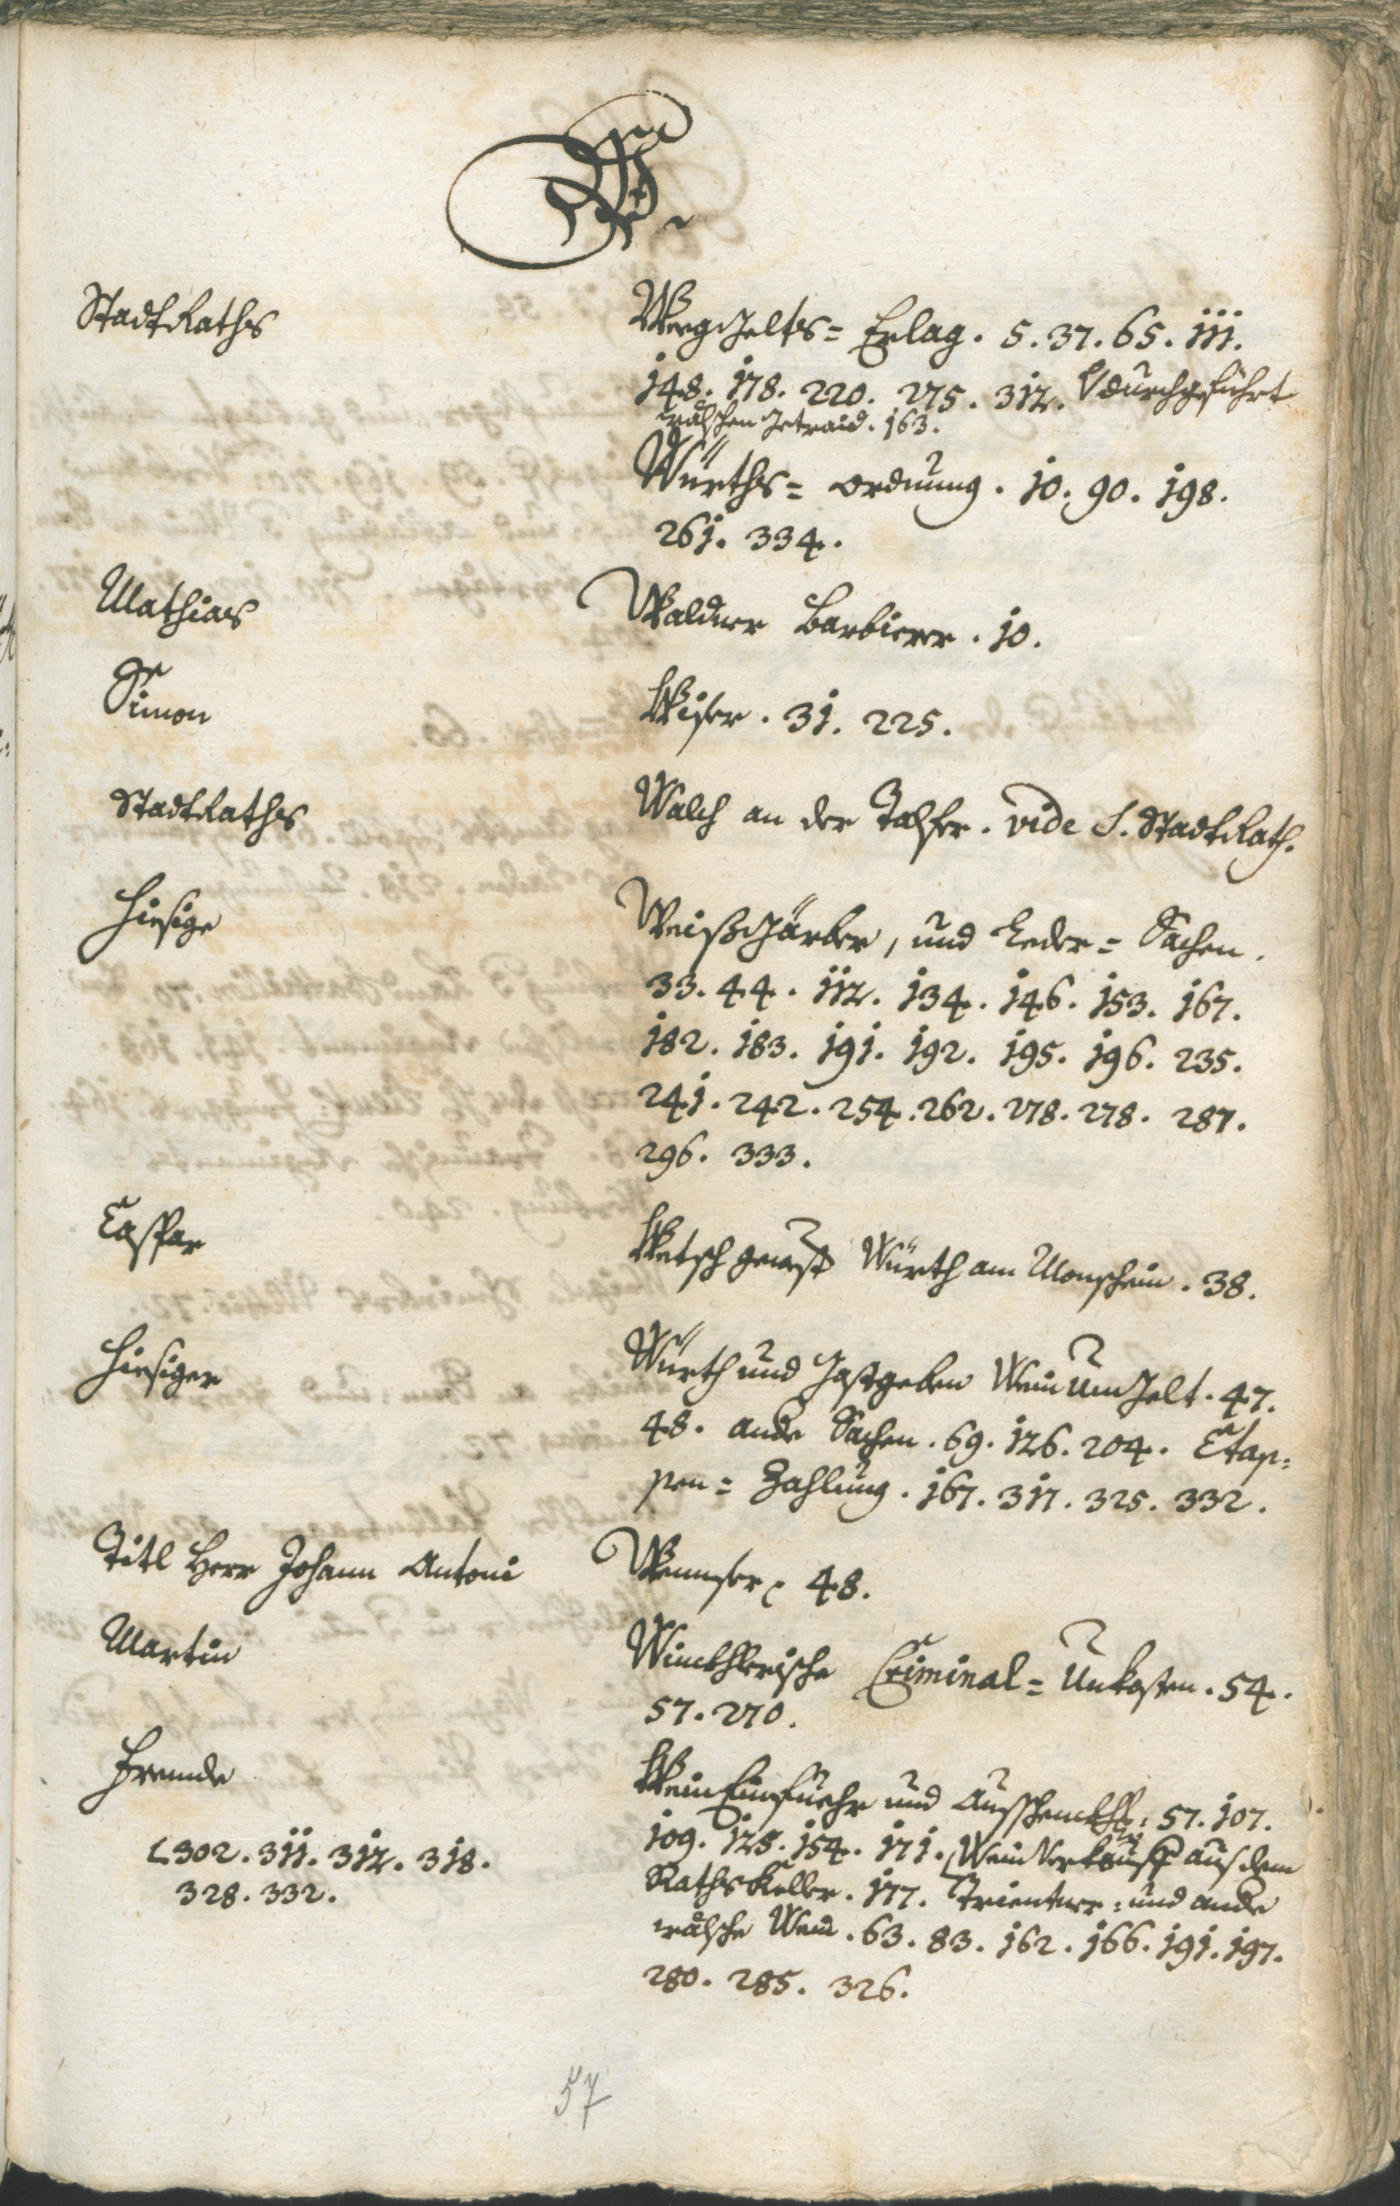 W.
StadtRaths
WegGelts= Erlag. 5. 37. 65. 111.
148. 178. 220. 275. 312. durchgeführt
wälschen Getraid. 163.
Würths= ordnung. 10. 90. 198.
261. 334.
Mathias
Waldner Barbierer. 10.
Simon
Wiser. 31. 225.
StadtRaths
Walch an der Talfer. vide S. StadtRath.
Hiesige
WeißGärber, und Leder= Sachen.
33. 44. 112. 134. 146. 153. 167.
182. 183. 191. 192. 195. 196. 235.
241. 242. 254. 262. 278. 278. 287.
296. 333.
Caspar
Wetsch gewest Würth am Monschein. 38.
Hiesiger
Würth und Gastgeben Wein UmGelt. 47.
48. ande Sachen. 69. 126. 204. Etap=
pen= Zahlung. 167. 317. 325. 332.
Titl Herr Johann Antoni
Wenser. 48.
Martin
Winckhlerische Criminal= Unkosten. 54.
57. 270.
Fremde
Wein Einfuehr und Ausschenckh: 57. 107.
109. 125. 154. 171. Wein Verkauff aus dem
Raths Keller. 177. Trientner= und ande
wälsche Wein. 63. 83. 162. 166. 191. 197.
280. 285. 326.
302. 311. 312. 318.
328. 332.
57